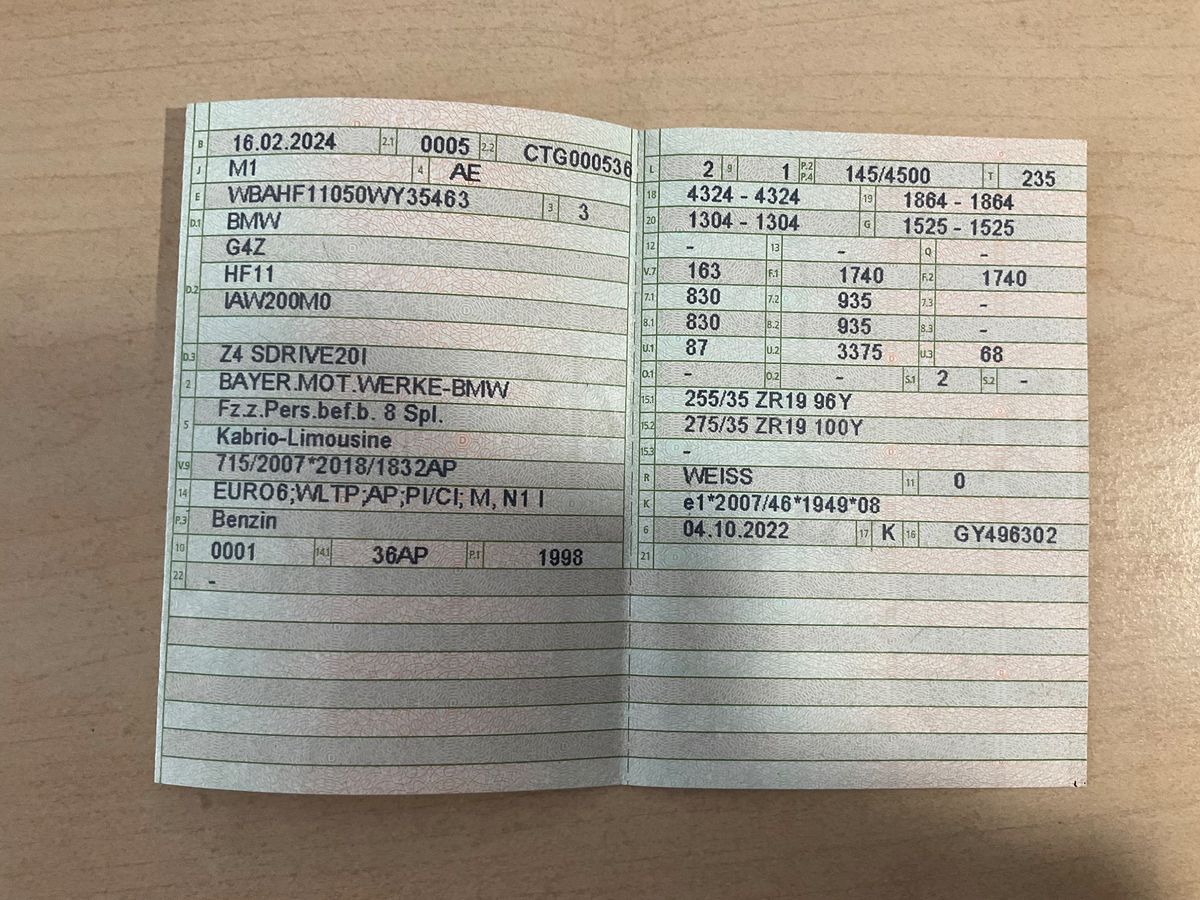 B 16.02.2024 2.1 0005 2.2 CTG000536
J M1 4 AE
E WBAHF11050WY35463 3 3
D.1 BMW
D.2 G4Z
HF11
IAW200M0
D.3 Z4 SDRIVE20I
2 BAYER.MOT.WERKE-BMW
5 Fz.z.Pers.bef.b. 8 Spl.
Kabrio-Limousine
V.9 715/2007*2018/1832AP
14 EURO6;WLTP;AP;PI/CI; M, N1 I
P.3 Benzin
10 0001 14.1 36AP P.1 1998
22 -
L 2 9 1 P.2 P.4 145/4500 T 235
18 4324 - 4324 19 1864 - 1864
20 1304 - 1304 G 1525 - 1525
12 - 13 - Q -
V.7 163 F.1 1740 F.2 1740
7.1 830 7.2 935 7.3 -
8.1 830 8.2 935 8.3 -
U.1 87 U.2 3375 U.3 68
O.1 - O.2 - S.1 2 S.2 -
15.1 255/35 ZR19 96Y
15.2 275/35 ZR19 100Y
15.3 -
R WEISS 11 0
K e1*2007/46*1949*08
6 04.10.2022 17 K 16 GY496302
21